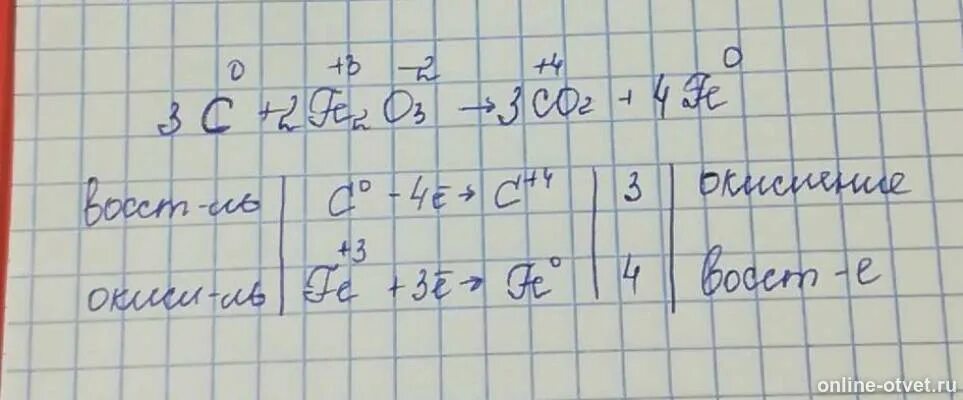 0 +3 -2 +4 0
3 C + 2 Fe2 O3 → 3 CO2 + 4 Fe
восст-ль | C⁰ - 4ē → C⁺⁴ | 3 | окисление
+3
окисл-ль | Fe + 3ē → Fe⁰ | 4 | восст-е
online-otvet.ru